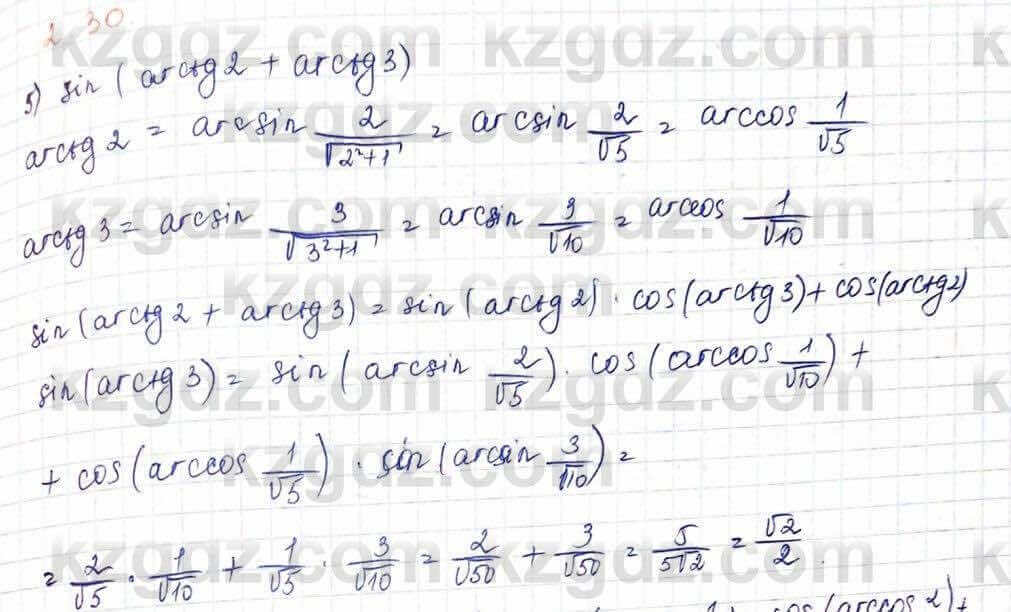 2 30
5) sin (arctg 2 + arctg 3)
arctg 2 = arcsin 2/√(2²+1) = arcsin 2/√5 = arccos 1/√5
arctg 3 = arcsin 3/√(3²+1) = arcsin 3/√10 = arccos 1/√10
sin (arctg 2 + arctg 3) = sin (arctg 2) · cos (arctg 3) + cos (arctg 2)
sin (arctg 3) = sin (arcsin 2/√5) · cos (arccos 1/√10) +
+ cos (arccos 1/√5) · sin (arcsin 3/√10) =
= 2/√5 · 1/√10 + 1/√5 · 3/√10 = 2/√50 + 3/√50 = 5/5√2 = √2/2
kzgdz.com